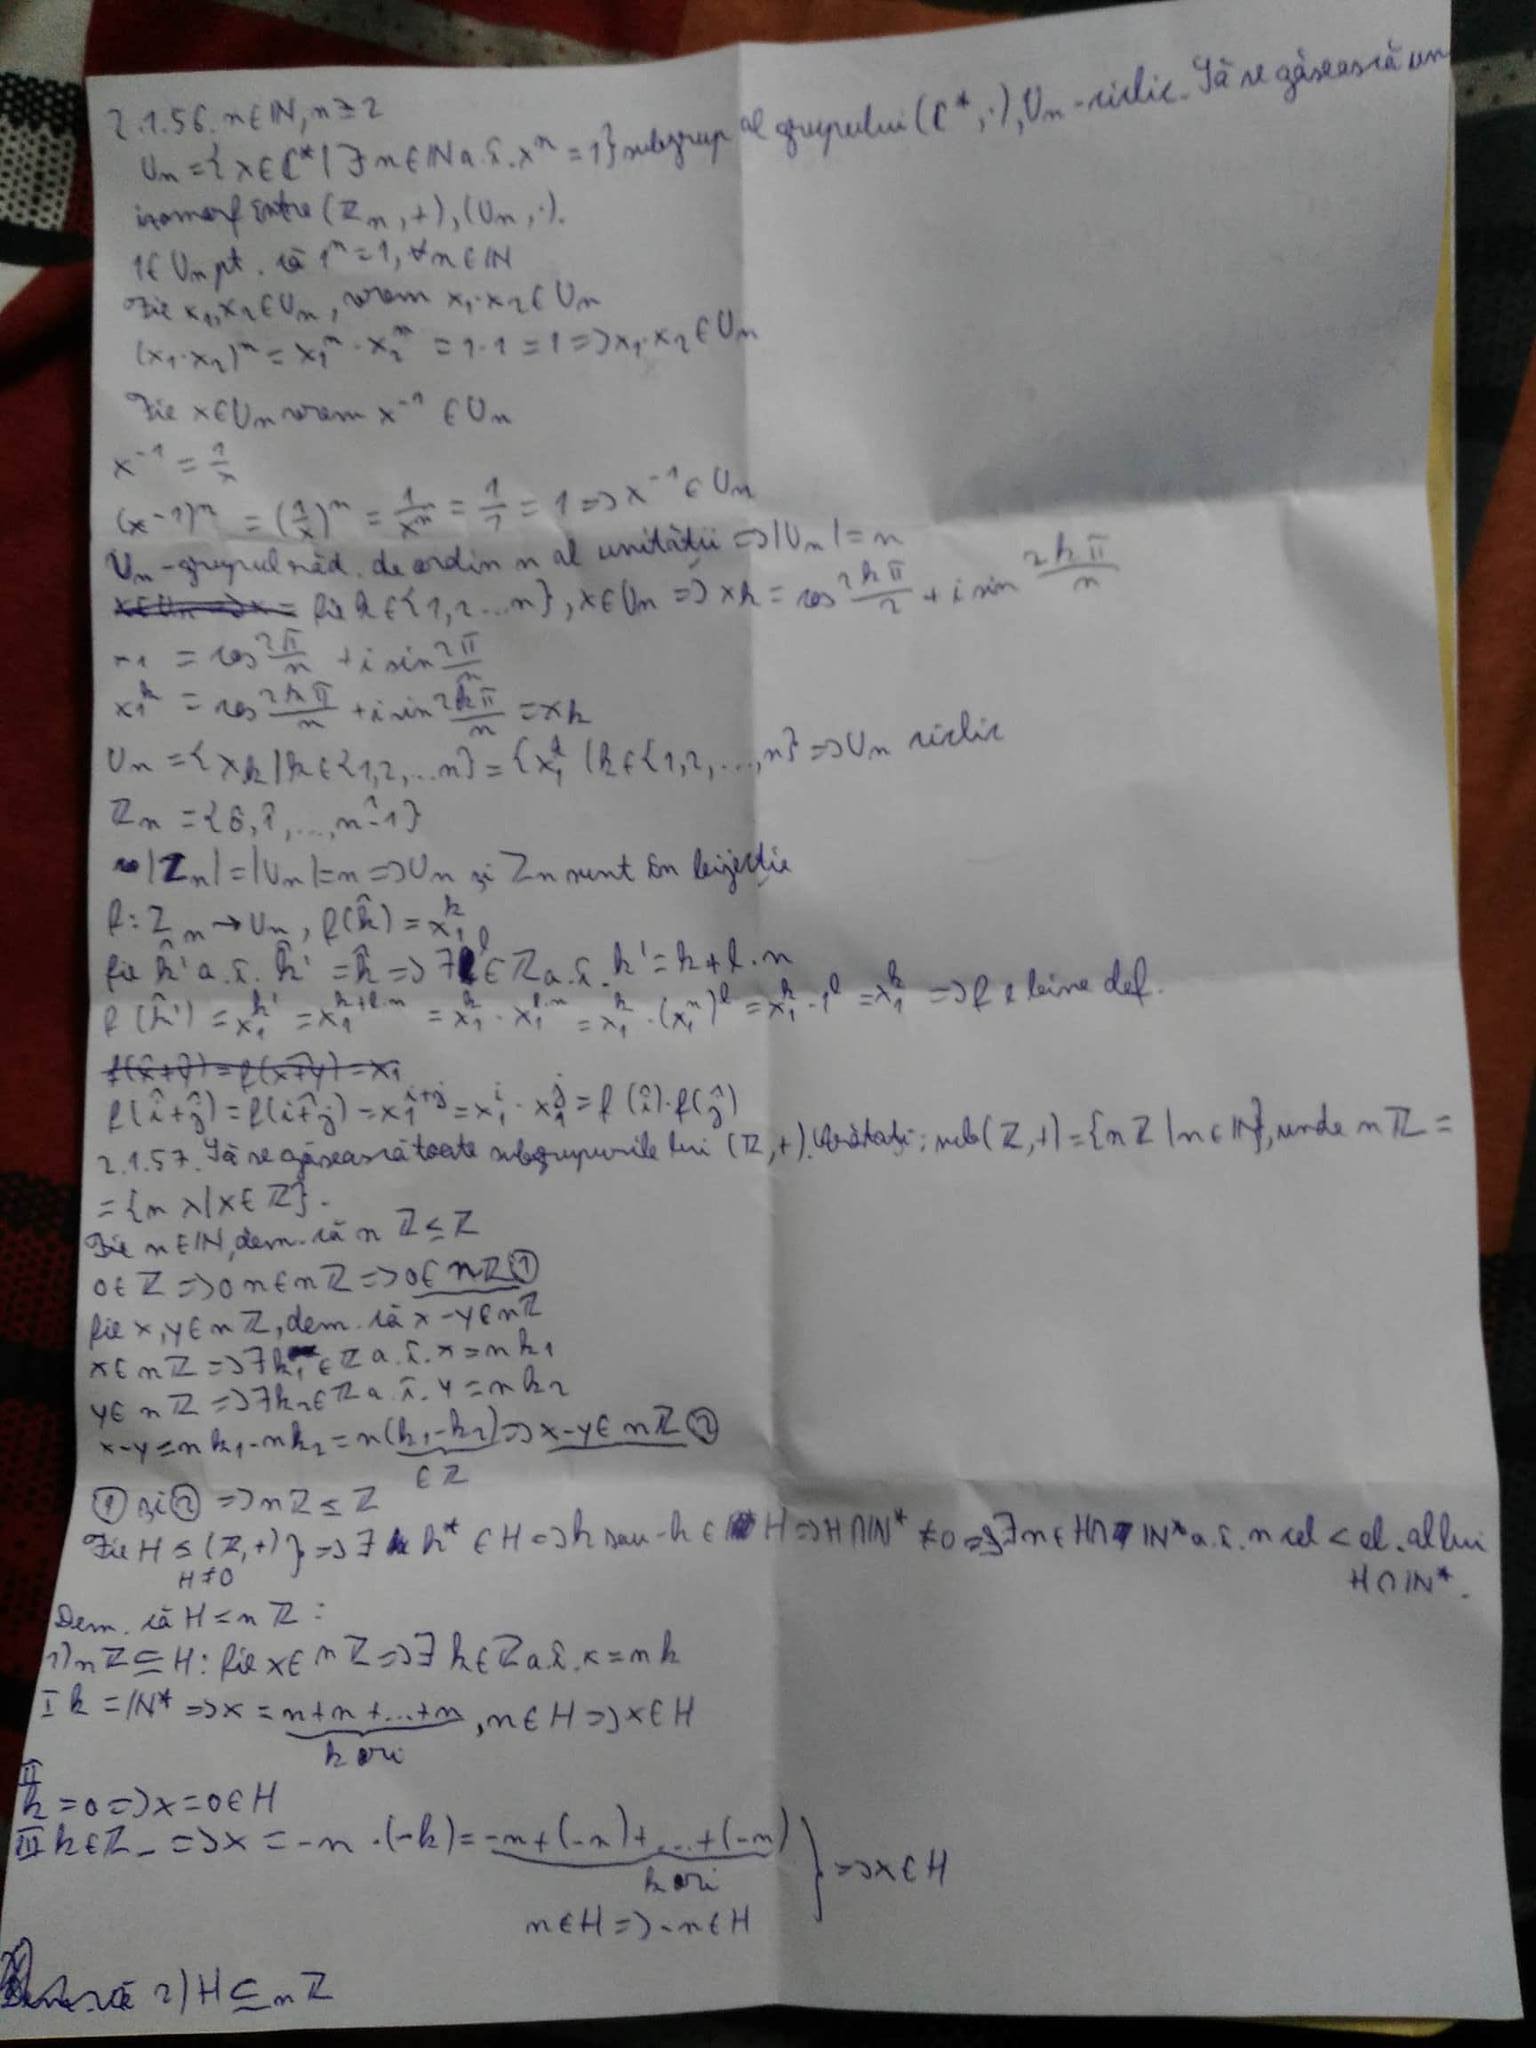 2.1.56. n∈ℕ, n≥2
Uₙ = {x∈ℂ* | ∃ n∈ℕ a.î. xⁿ = 1} subgrup al grupului (ℂ*, ·), Uₙ - ciclic. Să se găsească un
izomorf între (ℤₙ, +), (Uₙ, ·).
1∈Uₙ pt. că 1ⁿ = 1, ∀n∈ℕ
Fie x₁,x₂∈Uₙ, vrem x₁·x₂∈Uₙ
(x₁·x₂)ⁿ = x₁ⁿ·x₂ⁿ = 1·1 = 1 => x₁·x₂∈Uₙ
Fie x∈Uₙ vrem x⁻¹∈Uₙ
x⁻¹ = 1/x
(x⁻¹)ⁿ = (1/x)ⁿ = 1/xⁿ = 1/1 = 1 => x⁻¹∈Uₙ
Uₙ - grupul răd. de ordin n al unității => |Uₙ| = n
x∈Uₙ => x = fie k∈{1,2...n}, x∈Uₙ => xk = cos 2kπ/2 + i sin 2kπ/n
x₁ = cos 2π/n + i sin 2π/n
x₁ᵏ = cos 2kπ/n + i sin 2kπ/n = xk
Uₙ = {xk | k∈{1,2,...n} = {x₁ᵏ | k∈{1,2,...,n} => Uₙ ciclic
ℤₙ = {0̂, 1̂, ..., n-̂1}
|ℤₙ| = |Uₙ| = n => Uₙ și ℤₙ sunt în bijecție
f: ℤₙ → Uₙ, f(k̂) = x₁ᵏ
fie k̂' a.î. k̂' = k̂ => ∃ l∈ℤ a.î. k' = k+l·n
f(k̂') = x₁ᵏ' = x₁ᵏ⁺ˡ·ⁿ = x₁ᵏ·x₁ˡ·ⁿ = x₁ᵏ·(x₁ⁿ)ˡ = x₁ᵏ·1ˡ = x₁ᵏ => f e bine def.
f(x̂+ŷ) = f(x+̂y) = x₁
f(î+ĵ) = f(i+̂j) = x₁ⁱ⁺ʲ = x₁ⁱ·x₁ʲ = f(î)·f(ĵ)
2.1.57. Să se găsească toate subgrupurile lui (ℤ,+). Arătați: sub(ℤ,+) = {nℤ | n∈ℕ}, unde nℤ =
= {n x | x∈ℤ}.
Fie n∈ℕ, dem. că nℤ ≤ ℤ
0∈ℤ => 0n∈nℤ => 0∈nℤ ①
fie x,y∈nℤ, dem. că x-y∈nℤ
x∈nℤ => ∃k₁∈ℤ a.î. x = nk₁
y∈nℤ => ∃k₂∈ℤ a.î. y = nk₂
x-y = nk₁-nk₂ = n(k₁-k₂) => x-y∈nℤ ②
∈ℤ
① și ② => nℤ ≤ ℤ
Fie H ≤ (ℤ,+) } => ∃ h* ∈H => h sau -h ∈ H => H∩ℕ* ≠ 0 => ∃n∈H∩ℕ* a.î. n cel < el. al lui
H≠0 H∩ℕ*.
Dem. că H = nℤ:
1) nℤ ⊆ H: fie x∈nℤ => ∃ k∈ℤ a.î. x = nk
I k = ℕ* => x = n+n+...+n, n∈H => x∈H
k ori
II
k = 0 => x = 0∈H
III k∈ℤ₋ => x = -n·(-k) = -n+(-n)+...+(-n) } => x∈H
k ori
n∈H => -n∈H
2) H ⊆ nℤ